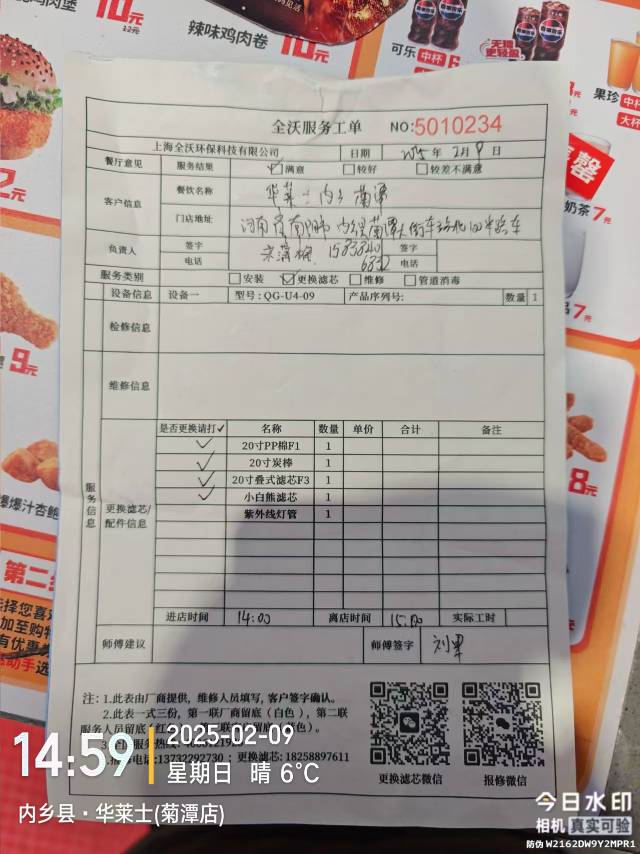 鸡肉堡
10元
12元
辣味鸡肉卷
10元
可乐 中杯 6
无糖
果珍 中杯
大杯
奶茶 7元
品 7元
2元
9元
8元
爆爆汁杏鲍
第二
选择您喜
加至购物
有优惠
动手选
全沃服务工单 NO:5010234
上海全沃环保科技有限公司 日期 2025年 2月 9日
餐厅意见 服务结果 满意 较好 较差不满意
客户信息 餐饮名称 华莱士内乡菊潭
门店地址 河南省南阳市内乡菊潭大街车站北
负责人 签字 签字
电话 15838240 6832 电话
服务类别 安装 更换滤芯 维修 管道消毒
设备信息 设备一 型号:QG-U4-09 产品序列号: 数量 1
检修信息
维修信息
服务信息
更换滤芯/配件信息
是否更换请打✓ 名称 数量 单价 合计 备注
✓ 20寸PP棉F1 1
✓ 20寸炭棒 1
✓ 20寸叠式滤芯F3 1
✓ 小白熊滤芯 1
紫外线灯管 1
进店时间 14:00 离店时间 15:00 实际工时
师傅建议 师傅签字
注:1.此表由厂商提供，维修人员填写，客户签字确认。
2.此表一式三份，第一联厂商留底（白色），第二联
服务人员留底
电话:13732292730 ;更换滤芯:18258897611
更换滤芯微信 报修微信
14:59 2025-02-09
星期日 晴 6℃
内乡县·华莱士(菊潭店)
今日水印
相机 真实可验
防伪 W2162DW9Y2MPR1